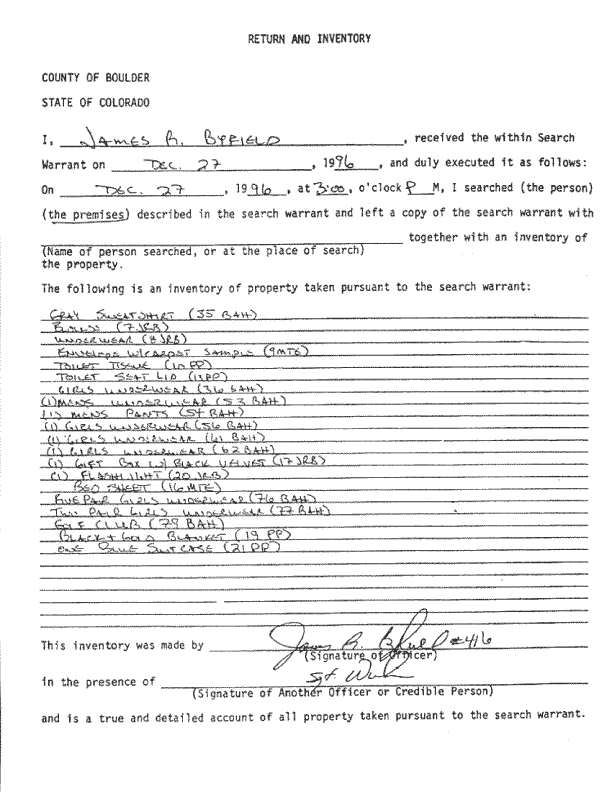 RETURN AND INVENTORY
COUNTY OF BOULDER
STATE OF COLORADO
I, JAMES R. BYFIELD, received the within Search
Warrant on DEC. 27, 1996, and duly executed it as follows:
On DEC. 27, 1996, at 3:00, o'clock P M, I searched (the person)
(the premises) described in the search warrant and left a copy of the search warrant with
together with an inventory of
(Name of person searched, or at the place of search)
the property.
The following is an inventory of property taken pursuant to the search warrant:
GRAY SWEATSHIRT (35 BAH)
(7 JRB)
UNDERWEAR (8 JRB)
ENVELOPE W/CARPET SAMPLE (9MTE)
TOILET TISSUE (10 PP)
TOILET SEAT LID (13PP)
GIRLS UNDERWEAR (36 BAH)
(1) MENS UNDERWEAR (53 BAH)
(1) MENS PANTS (54 BAH)
(1) GIRLS UNDERWEAR (56 BAH)
(1) GIRLS UNDERWEAR (61 BAH)
(1) GIRLS UNDERWEAR (62 BAH)
(1) GIFT BOX W/ BLACK VELVET (17 JRB)
(1) FLASHLIGHT (20 JRB)
BED SHEET (16 MTE)
FIVE PAIR GIRLS UNDERWEAR (76 BAH)
TWO PAIR GIRLS UNDERWEAR (77 BAH)
GOLF CLUB (79 BAH)
BLACK + GOLD BLANKET (19 PP)
ONE BLUE SUITCASE (21 PP)
This inventory was made by James R. Byfield #416
(Signature of Officer)
in the presence of Sgt.
(Signature of Another Officer or Credible Person)
and is a true and detailed account of all property taken pursuant to the search warrant.